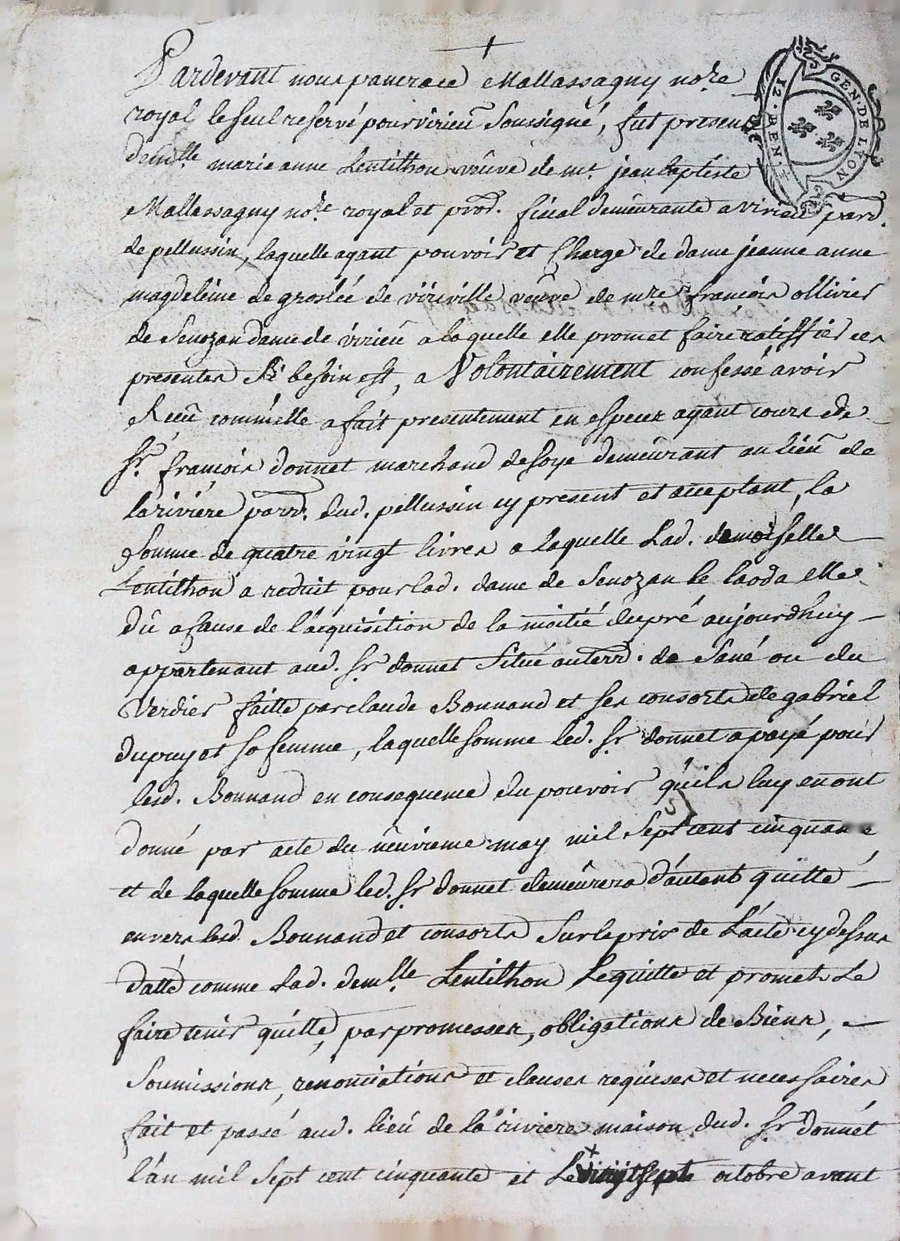 GEN. DE LYON
12. DEN. rs
Pardevant nous pancrace Mallassagny nore
royal le seul reservé pour virieu soussigné, fut presente
demlle marie anne Lentilhon veuve de mr. jean baptiste
Mallassagny nore royal et procr. fiscal demeurante a virieu parr.
de pellussin, laquelle ayant pouvoir et charge de dame jeanne anne
magdeleine de groslée de viriville veuve de mre françois ollivier
de Senozan dame de virieu a laquelle elle promet faire ratiffier ces
presentes si besoin est, a Volontairement confessé avoir
Receu comm'elle a fait presentement en especes ayant cours de
sr. françois donnet marchand de soye demeurant au lieu de
la riviere parr. dud. pellussin cy present et acceptant, la
somme de quatre vingt livres a laquelle Lad. demoiselle
Lentilhon a reduit pour lad. dame de Senozan le laod a elle
dû a cause de l'acquisition de la moitié du pré aujourdhuy
appartenant aud. sr. donnet situé au terr. de Sané ou du
Verdier faitte par claude Bonnand et ses consorts de gabriel
dupuy et sa femme, laquelle somme led. sr donnet a payé pour
lesd. Bonnand en consequence du pouvoir qu'ils luy en ont
donné par acte du neuvieme may mil sept cent cinquante
et de laquelle somme led. sr donnet demeurera d'autant quitte
envers lesd. Bonnand et consorts sur le prix de L'acte cy dessus
datté comme Lad. demlle Lentilhon Le quitte et promet Le
faire tenir quitte, par promesses, obligations de Biens,
soumissions, renonciations et clauses requises et necessaires
fait et passé aud. lieu de la riviere maison dud. sr donnet
l'an mil sept cent cinquante et Le vingt sept octobre avant